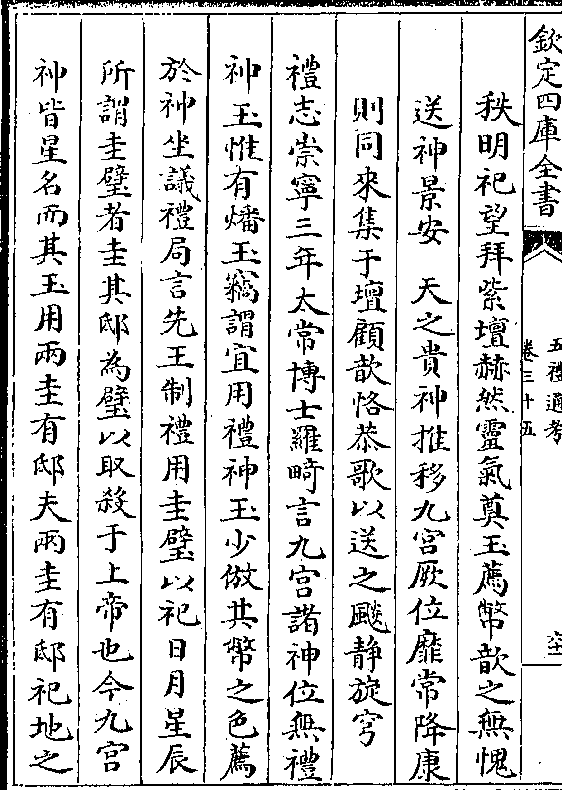 欽定四庫全書
五禮通考
卷三十五
秩明祀望拜紫壇赫然靈氣奠玉薦幣歆之無愧
送神景安　天之貴神推移九宮厥位靡常降康
則同來集于壇顧歆恪恭歌以送之颷静旋穹
禮志崇寧三年太常博士羅畸言九宮諸神位無禮
神玉惟有燔玉竊謂宜用禮神玉少倣其幣之色薦
於神坐議禮局言先王制禮用圭璧以祀日月星辰
所謂圭璧者圭其邸為璧以取殺于上帝也今九宮
神皆星名而其玉用兩圭有邸夫兩圭有邸祀地之